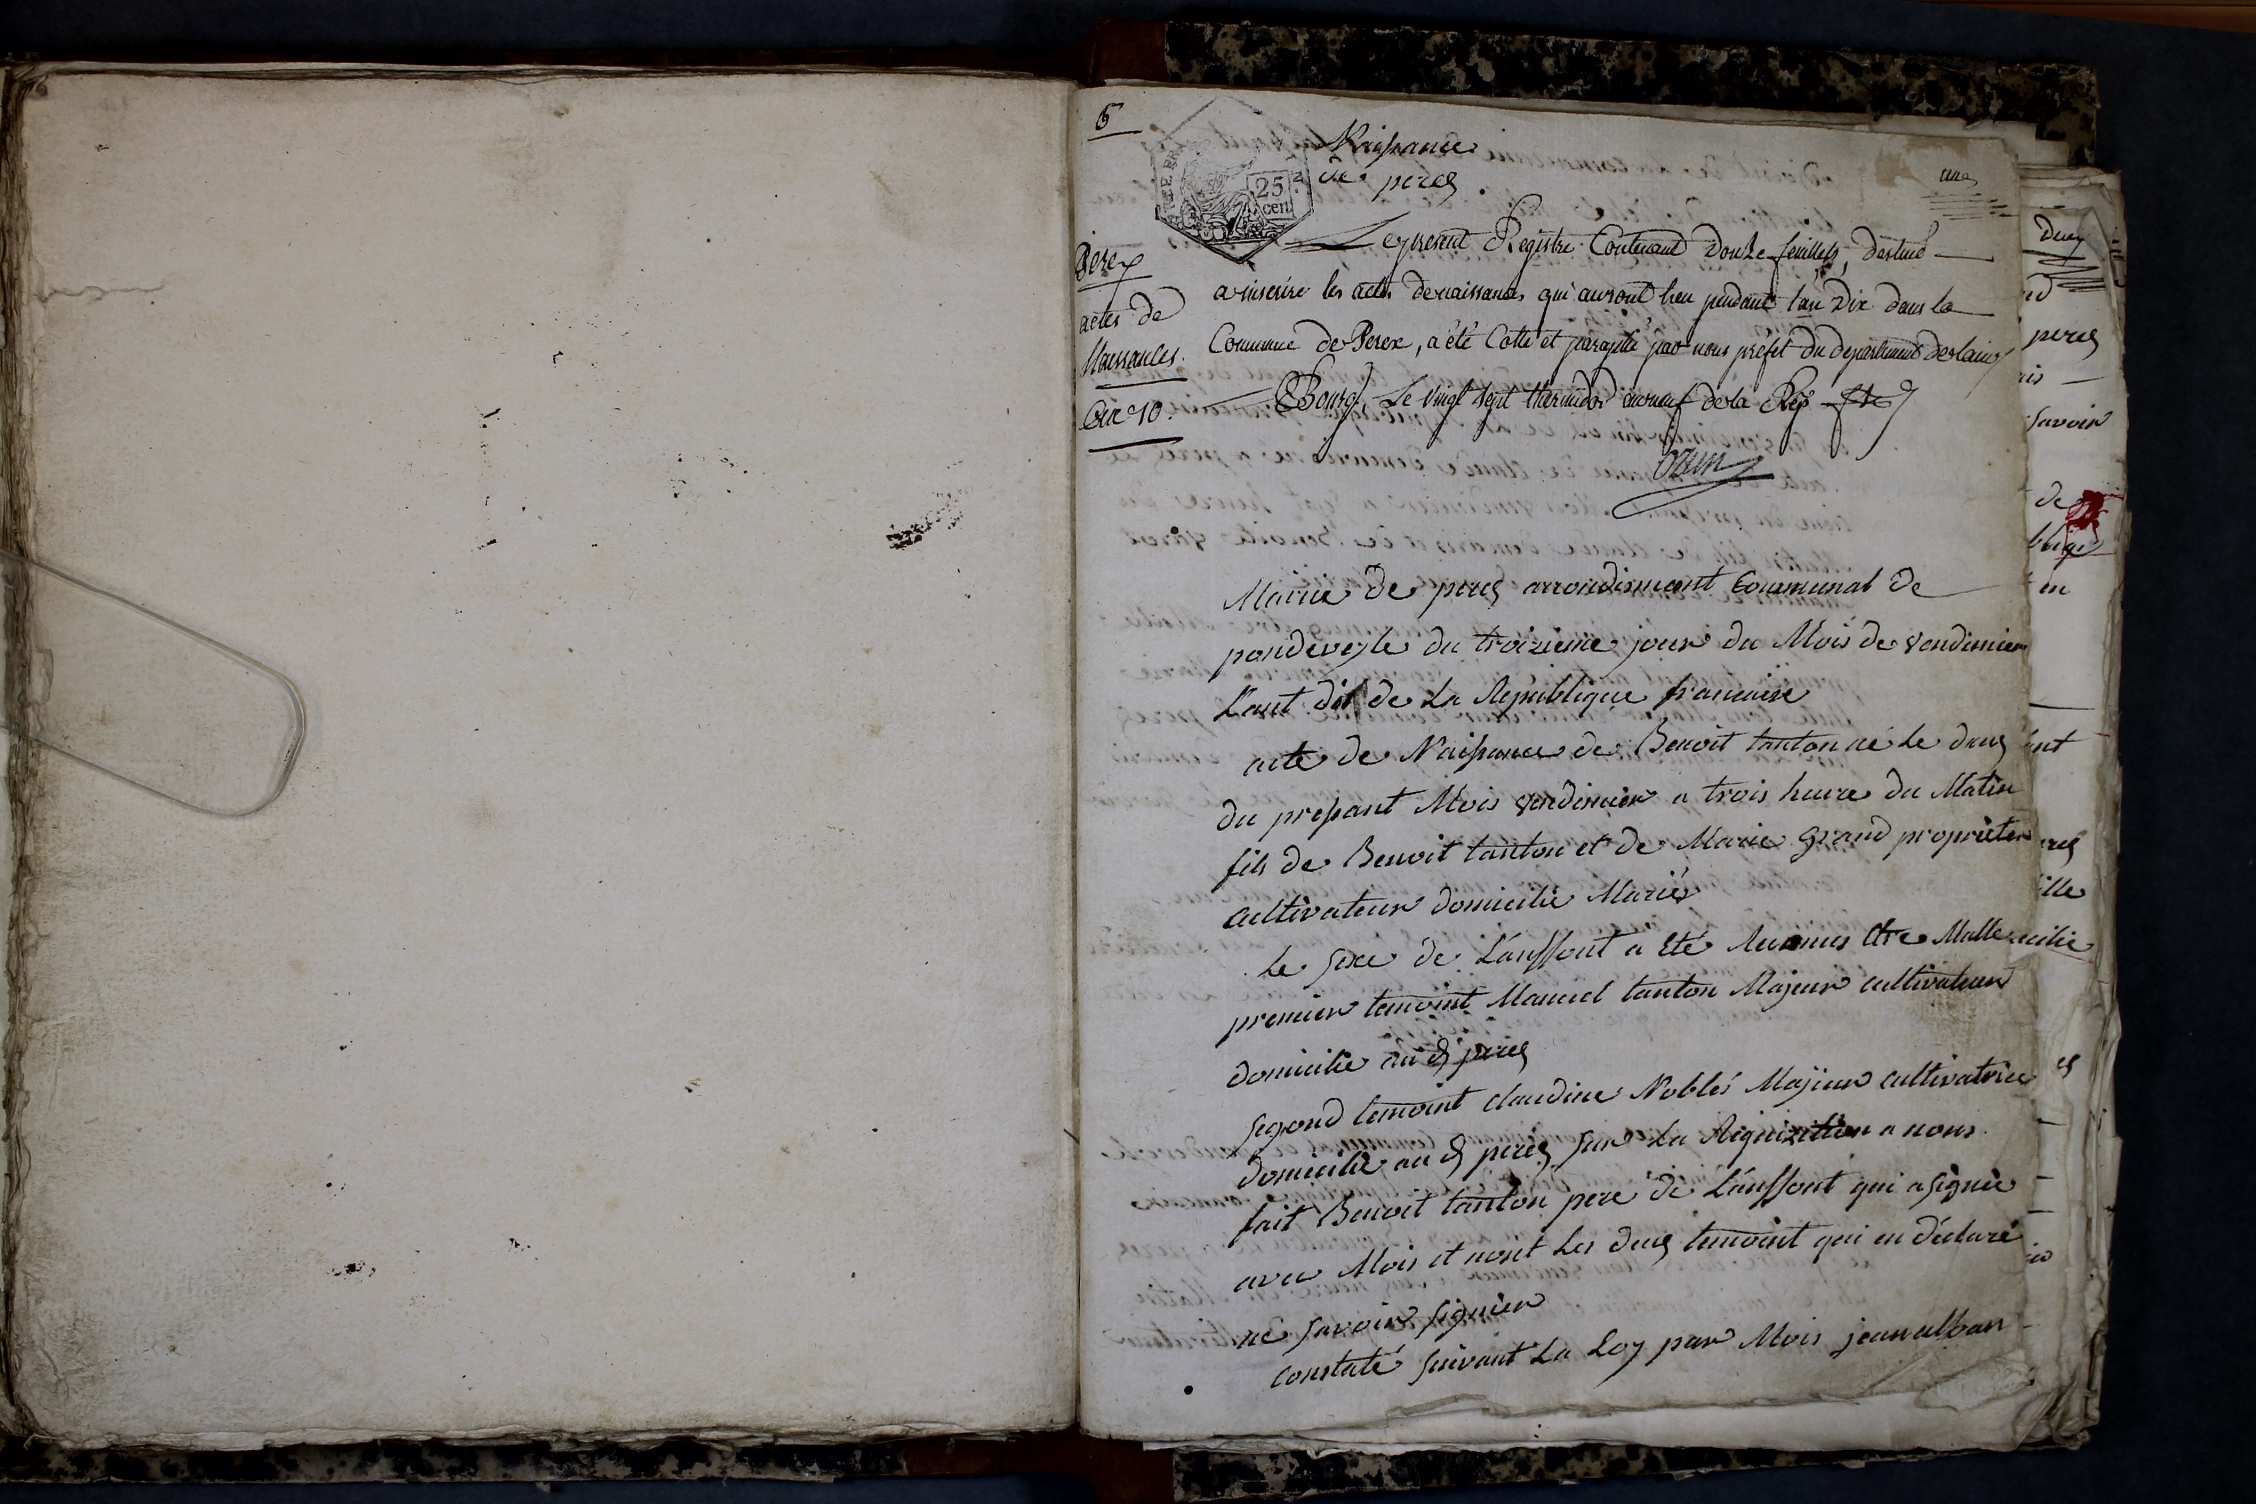 6
Naissance
de perex
une
25 c
cen
Perex
actes de
Naissances.
An 10.
Le present Registre Contenant Douze feuillets, destiné
a inscrire les actes de naissances qui auront lieu pendant l'an Dix dans la
Commune de Perex, a été Cotté et paraphé par nous préfet du departement de lain
A Bourg, Le Vingt Sept thermidor an neuf de la Rép. fse
Ozun
Mairie de perex arrondisment Communal de
pondeveyle du troizieme jour du Mois de vendimier
L'ant dix de La Republique francaise
acte de Naissance de Benoit tanton né le deux
du pressant Mois vendimier a trois heure du Matin
fils de Benoit tanton et de Marie Grand proprieter
cultivateur domicilie Mariés
le sexe de L'anffont a Eté Reconnus etre Malle
premier temoint Manuel tanton Majeur cultivateur
domicilie au d perex
segond temoint claudine Noblés Majeur cultivatrice
domicilie au d perex sur La Requizition a nous
fait Benoit tanton pere de L'anffont qui a signié
avec Mois et nont les deux temoint qui en déclaré
ne savoir signier
constaté suivant La Loy par Mois jean alban
deux
perex
savoir
de
en
ille